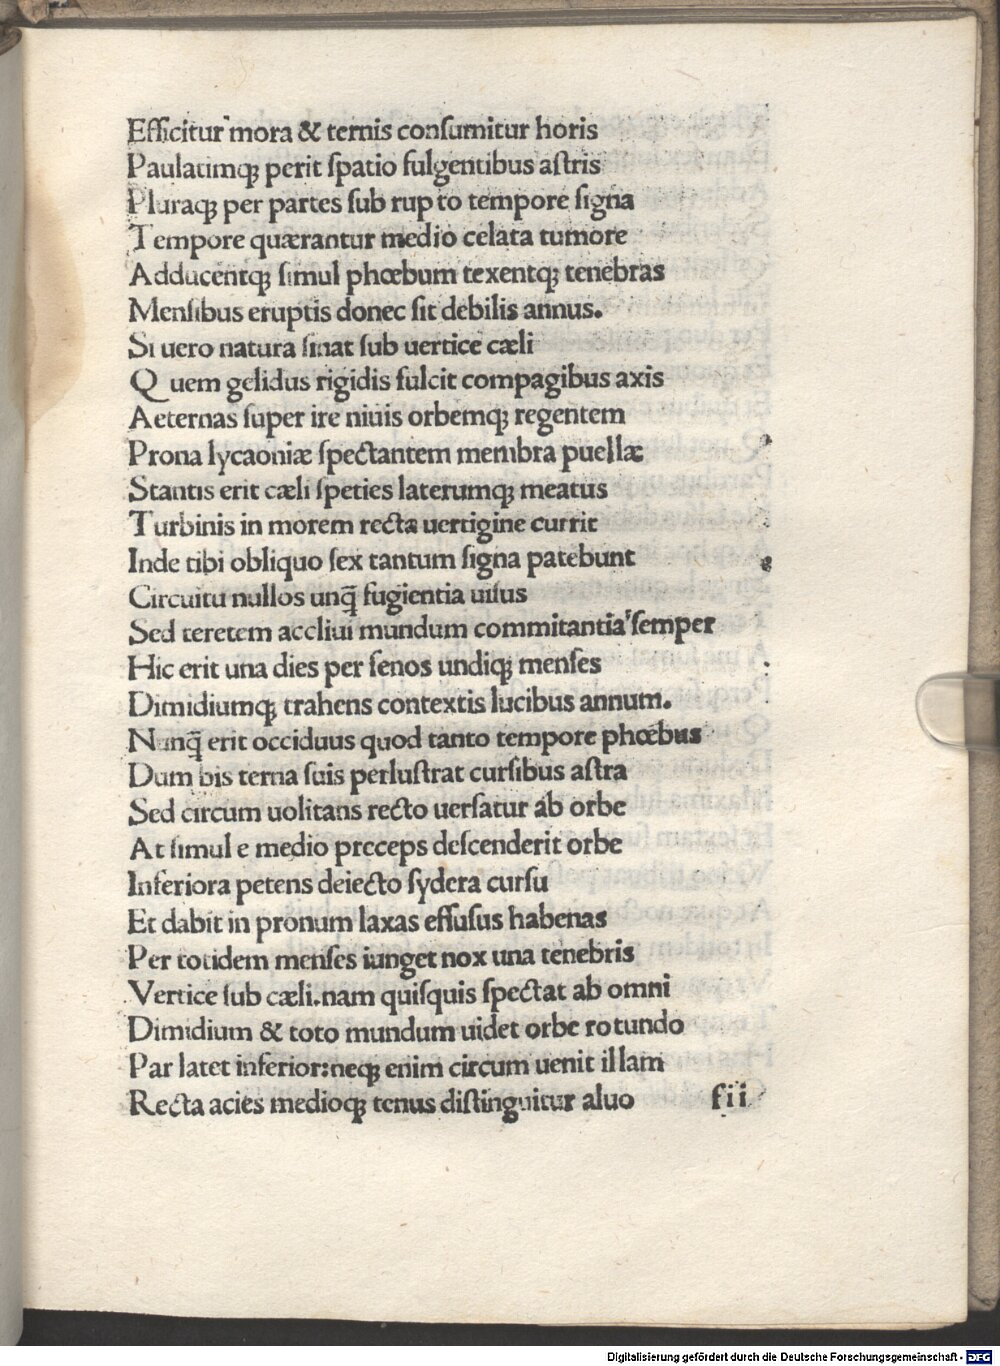 Efficitur mora & ternis conſumitur horis
Paulatimqꝫ perit ſpatio fulgentibus aſtris
Pluraqꝫ per partes ſub rup to tempore ſigna
Tempore quærantur medio celata tumore
Adducentqꝫ ſimul phœbum texentqꝫ tenebras
Menſibus eruptis donec ſit debilis annus.
Si uero natura ſinat ſub uertice cæli
Q uem gelidus rigidis fulcit compagibus axis
Aeternas ſuper ire niuis orbemqꝫ regentem
Prona lycaoniæ ſpectantem membra puellæ
Stantis erit cæli ſpeties laterumqꝫ meatus
Turbinis in morem recta uertigine currit
Inde tibi obliquo ſex tantum ſigna patebunt
Circuitu nullos unq̄ fugientia uiſus
Sed teretem accliui mundum commitantia ſemper
Hic erit una dies per ſenos undiqꝫ menſes
Dimidiumqꝫ trahens contextis lucibus annum.
Nunq̄ erit occiduus quod tanto tempore phœbus
Dum bis terna ſuis perluſtrat curſibus aſtra
Sed circum uolitans recto uerſatur ab orbe
At ſimul e medio preceps deſcenderit orbe
Inferiora petens deiecto ſydera curſu
Et dabit in pronum laxas effuſus habenas
Per totidem menſes iunget nox una tenebris
Vertice ſub cæli.nam quiſquis ſpectat ab omni
Dimidium & toto mundum uidet orbe rotundo
Par latet inferior:neqꝫ enim circum uenit illam
Recta acies medioqꝫ tenus diſtinguitur aluo fii
Digitalisierung gefördert durch die Deutsche Forschungsgemeinschaft - DFG